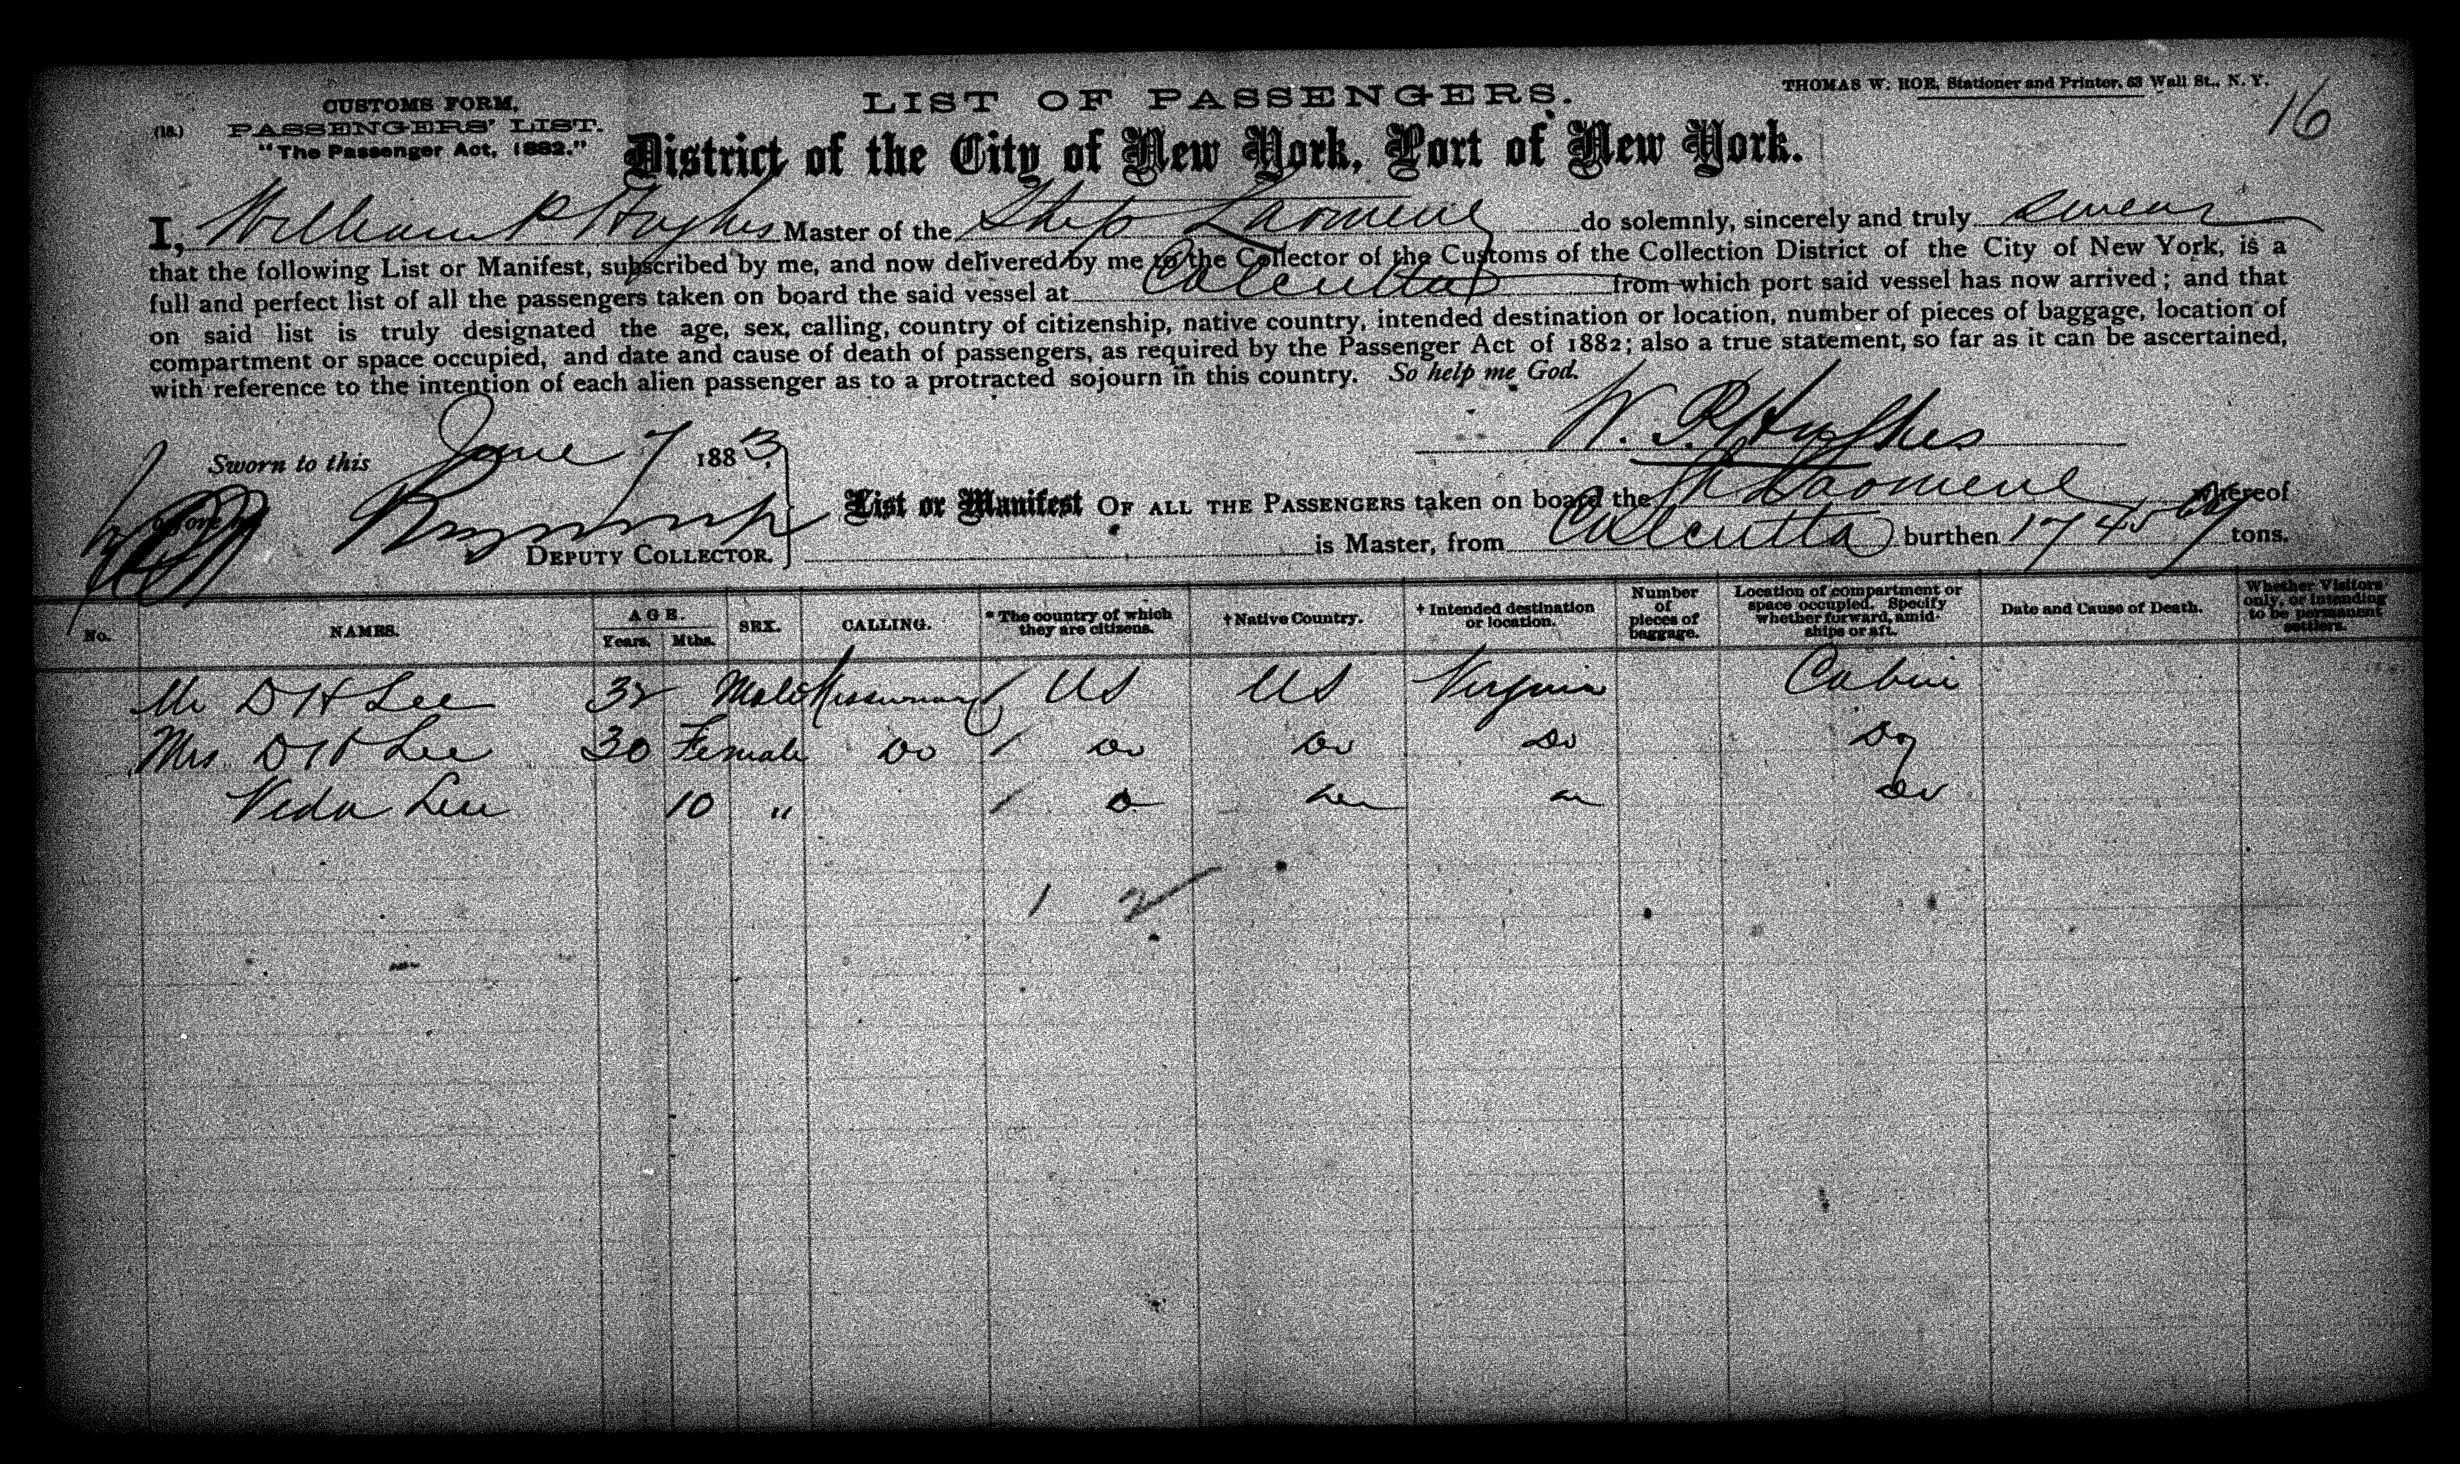 THOMAS W. ROE, Stationer and Printer, 63 Wall St., N. Y.
16
LIST OF PASSENGERS.
CUSTOMS FORM,
(18.) PASSENGERS' LIST.
"The Passenger Act, 1882."
District of the City of New York, Port of New York.
I, William P Hughes Master of the Ship Laomene do solemnly, sincerely and truly swear
that the following List or Manifest, subscribed by me, and now delivered by me to the Collector of the Customs of the Collection District of the City of New York, is a
full and perfect list of all the passengers taken on board the said vessel at Calcutta from which port said vessel has now arrived; and that
on said list is truly designated the age, sex, calling, country of citizenship, native country, intended destination or location, number of pieces of baggage, location of
compartment or space occupied, and date and cause of death of passengers, as required by the Passenger Act of 1882; also a true statement, so far as it can be ascertained,
with reference to the intention of each alien passenger as to a protracted sojourn in this country. So help me God.
W. P. Hughes
Sworn to this June 7 1883
before
List or Manifest OF ALL THE PASSENGERS taken on board the Laomene whereof
DEPUTY COLLECTOR.
is Master, from Calcutta burthen 1745 tons.
No. NAMES. AGE. Years. Mths. SEX. CALLING. * The country of which they are citizens. † Native Country. † Intended destination or location. Number of pieces of baggage. Location of compartment or space occupied. Specify whether forward, amidships or aft. Date and Cause of Death. Whether Visitors only, or intending to be permanent settlers.
Mr D H Lee 32 Male Missionary / US US Virginia Cabin
Mrs D H Lee 30 Female Do / Do Do Do Do
Veda Lee 10 " / Do
1 2